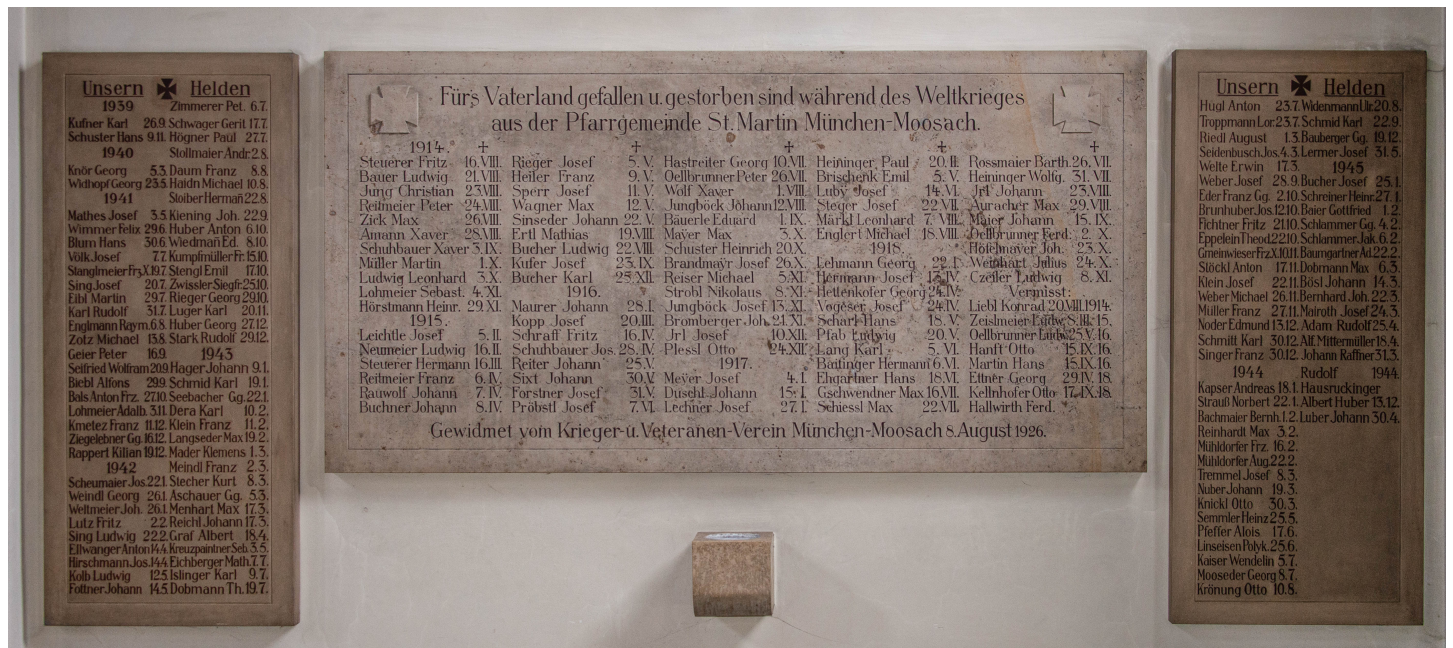 Unsern Helden
1939
Kufner Karl 26.9.
Schuster Hans 9.11.
1940
Knör Georg 5.3.
Widhopf Georg 23.5.
1941
Mathes Josef 3.5.
Wimmer Felix 29.6.
Blum Hans 30.6.
Völk Josef 7.7.
Stanglmeier Frz.X. 19.7.
Sing Josef 20.7.
Eibl Martin 29.7.
Karl Rudolf 31.7.
Englmann Raym. 6.8.
Zotz Michael 13.8.
Geier Peter 16.9.
Seifried Wolfram 20.9.
Biebl Alfons 29.9.
Bals Anton Frz. 27.10.
Lohmeier Adalb. 3.11.
Kmetez Franz 11.12.
Ziegelebner Gg. 16.12.
Rappert Kilian 19.12.
1942
Scheumaier Jos. 22.1.
Weindl Georg 26.1.
Weltmeier Joh. 26.1.
Lutz Fritz 2.2.
Sing Ludwig 22.2.
Ellwanger Anton 14.4.
Hirschmann Jos. 14.4.
Kolb Ludwig 12.5.
Fottner Johann 14.5.
Zimmerer Pet. 6.7.
Schwager Gerit 17.7.
Högner Paul 27.7.
Stollmaier Andr. 2.8.
Daum Franz 8.8.
Haidn Michael 10.8.
Stoiber Herman̄ 22.8.
Kiening Joh. 22.9.
Huber Anton 6.10.
Wiedman̄ Ed. 8.10.
Kumpfmüller Fr. 15.10.
Stengl Emil 17.10.
Zwissler Siegfr. 25.10.
Rieger Georg 29.10.
Luger Karl 20.11.
Huber Georg 27.12.
Stark Rudolf 29.12.
1943
Hager Johann 9.1.
Schmid Karl 19.1.
Seebacher Gg. 22.1.
Dera Karl 10.2.
Klein Franz 11.2.
Langseder Max 19.2.
Mader Klemens 1.3.
Meindl Franz 2.3.
Stecher Kurt 8.3.
Aschauer Gg. 5.3.
Menhart Max 17.3.
Reichl Johann 17.3.
Graf Albert 18.4.
Kreuzpaintner Seb. 3.5.
Eichberger Math. 7.7.
Islinger Karl 9.7.
Dobmann Th. 19.7.
Fürs Vaterland gefallen u. gestorben sind während des Weltkrieges
aus der Pfarrgemeinde St. Martin München-Moosach.
1914. †
Steuerer Fritz 16.VIII.
Bauer Ludwig 21.VIII.
Jung Christian 23.VIII.
Reitmeier Peter 24.VIII.
Zick Max 26.VIII.
Amann Xaver 28.VIII.
Schuhbauer Xaver 3.IX.
Müller Martin 1.X.
Ludwig Leonhard 3.X.
Lohmeier Sebast. 4.XI.
Hörstmann Heinr. 29.XI.
1915.
Leichtle Josef 5.II.
Neumeier Ludwig 16.II.
Steuerer Hermann 16.III.
Reitmeier Franz 6.IV.
Rauwolf Johann 7.IV.
Buchner Johann 8.IV.
†
Rieger Josef 5.V.
Heiler Franz 9.V.
Sperr Josef 11.V.
Wagner Max 12.V.
Sinseder Johann 22.V.
Ertl Mathias 19.VIII.
Bucher Ludwig 22.VIII.
Kufer Josef 23.IX.
Bucher Karl 25.XII.
1916.
Maurer Johann 28.I.
Kopp Josef 20.III.
Schraff Fritz 16.IV.
Schuhbauer Jos. 28.IV.
Reiter Johann 25.V.
Sixt Johann 30.V.
Forstner Josef 31.V.
Pröbstl Josef 7.VI.
†
Hastreiter Georg 10.VII.
Oellbrunner Peter 26.VII.
Wolf Xaver 1.VIII.
Jungböck Johann 12.VIII.
Bäuerle Eduard 1.IX.
Mayer Max 3.X.
Schuster Heinrich 20.X.
Brandmayr Josef 26.X.
Reiser Michael 5.XI.
Strobl Nikolaus 8.XI.
Jungböck Josef 13.XI.
Bromberger Joh. 21.XI.
Jrl Josef 10.XII.
Plessl Otto 24.XII.
1917.
Meyer Josef 4.I.
Duschl Johann 15.I.
Lechner Josef 27.I.
†
Heininger Paul 20.II.
Brischenk Emil 5.V.
Luby Josef 14.VI.
Steger Josef 22.VII.
Märkl Leonhard 7.VIII.
Englert Michael 18.VIII.
1918.
Lehmann Georg 22.I.
Hermann Josef 15.IV.
Hettenkofer Georg 24.IV.
Vogeser Josef 24.IV.
Scharl Hans 18.V.
Pfab Ludwig 20.V.
Lang Karl 5.VI.
Baitinger Hermann 6.VI.
Ehgartner Hans 18.VI.
Gschwendner Max 16.VII.
Schiessl Max 22.VII.
†
Rossmaier Barth. 26.VII.
Heininger Wolfg. 31.VII.
Jrl Johann 23.VIII.
Auracher Max 29.VIII.
Maier Johann 15.IX.
Oellbrunner Ferd. 2.X.
Hötelmayer Joh. 23.X.
Weinhart Julius 24.X.
Czeiler Ludwig 8.XI.
Vermisst:
Liebl Konrad 20.VIII.1914.
Zeislmeier Ludw. 8.III.15.
Oellbrunner Ludw. 25.V.16.
Hanft Otto 15.IX.16.
Martin Hans 15.IX.16.
Ettner Georg 29.IV.18.
Kellnhofer Otto 17.IX.18.
Hallwirth Ferd.
Gewidmet vom Krieger-u. Veteranen-Verein München-Moosach 8. August 1926.
Unsern Helden
Hügl Anton 23.7.
Troppmann Lor. 23.7.
Riedl August 1.3.
Seidenbusch Jos. 4.3.
Welte Erwin 17.3.
Weber Josef 28.9.
Eder Franz Gg. 2.10.
Brunhuber Jos. 12.10.
Fichtner Fritz 21.10.
Eppelein Theod. 22.10.
Gmeinwieser Frz.X. 10.11.
Stöckl Anton 17.11.
Klein Josef 22.11.
Weber Michael 26.11.
Müller Franz 27.11.
Noder Edmund 13.12.
Schmitt Karl 30.12.
Singer Franz 30.12.
1944
Kapser Andreas 18.1.
Strauß Norbert 22.1.
Bachmaier Bernh. 1.2.
Reinhardt Max 3.2.
Mühldorfer Frz. 16.2.
Mühldorfer Aug. 22.2.
Tremmel Josef 8.3.
Nuber Johann 19.3.
Knickl Otto 30.3.
Semmler Heinz 25.5.
Pfeffer Alois 17.6.
Linseisen Polyk. 25.6.
Kaiser Wendelin 5.7.
Mooseder Georg 8.7.
Krönung Otto 10.8.
Widenmann Ulr. 20.8.
Schmid Karl 22.9.
Bauberger Gg. 19.12.
Lermer Josef 31.5.
1945
Bucher Josef 25.1.
Schreiner Heinr. 27.1.
Baier Gottfried 1.2.
Schlammer Gg. 4.2.
Schlammer Jak. 6.2.
Baumgartner Ad. 22.2.
Dobmann Max 6.3.
Bösl Johann 14.3.
Bernhard Joh. 22.3.
Mairoth Josef 24.3.
Adam Rudolf 25.4.
Alf. Mittermüller 18.4.
Johann Raffner 31.3.
Rudolf 1944.
Hausruckinger
Albert Huber 13.12.
Luber Johann 30.4.